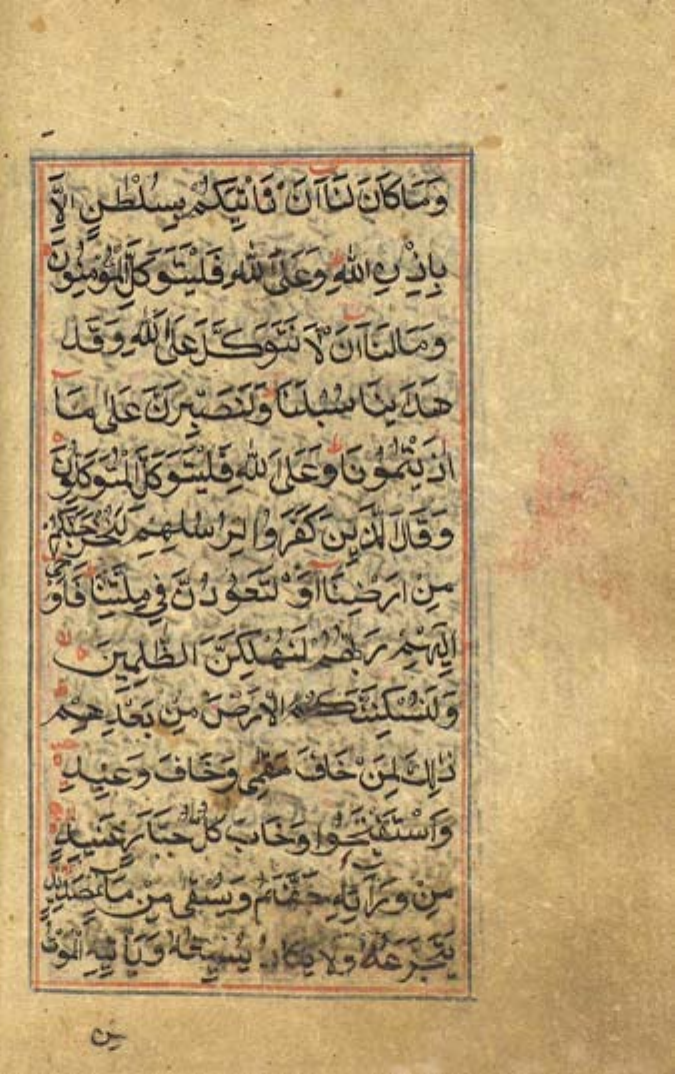 وَمَا كَانَ لَنَا اَنْ نَأْتِيَكُمْ بِسُلْطٰنٍ اِلَّا
بِاِذْنِ اللّٰهِ وَعَلَى اللّٰهِ فَلْيَتَوَكَّلِ الْمُؤْمِنُونَ
وَمَا لَنَا اَنْ لَا نَتَوَكَّلَ عَلَى اللّٰهِ وَقَدْ
هَدٰينَا سُبُلَنَا وَلَنَصْبِرَنَّ عَلٰى مَا
اٰذَيْتُمُونَا وَعَلَى اللّٰهِ فَلْيَتَوَكَّلِ الْمُتَوَكِّلُونَ
وَقَالَ الَّذِينَ كَفَرُوا لِرُسُلِهِمْ لَنُخْرِجَنَّكُمْ
مِنْ اَرْضِنَا اَوْ لَتَعُودُنَّ فِي مِلَّتِنَا فَاَوْحٰى
اِلَيْهِمْ رَبُّهُمْ لَنُهْلِكَنَّ الظّٰلِمِينَ
وَلَنُسْكِنَنَّكُمُ الْاَرْضَ مِنْ بَعْدِهِمْ
ذٰلِكَ لِمَنْ خَافَ مَقَامِى وَخَافَ وَعِيدِ
وَاسْتَفْتَحُوا وَخَابَ كُلُّ جَبَّارٍ عَنِيدٍ
مِنْ وَرَائِهِ جَهَنَّمُ وَيُسْقٰى مِنْ مَاءٍ صَدِيدٍ
يَتَجَرَّعُهُ وَلَا يَكَادُ يُسِيغُهُ وَيَأْتِيهِ الْمَوْتُ
مِنْ